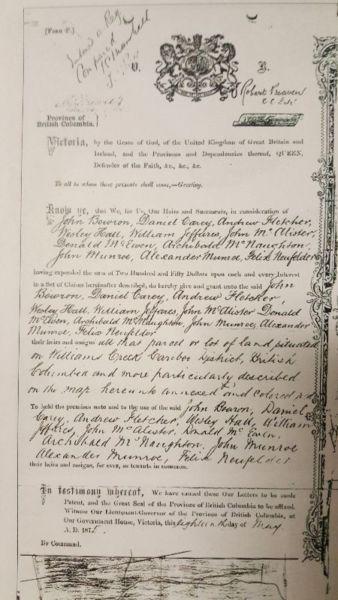 [Form F.]
V. R.
Robert Beaven
Province of
British Columbia.
Victoria, by the Grace of God, of the United Kingdom of Great Britain and
Ireland, and the Provinces and Dependencies thereof, QUEEN,
Defender of the Faith, &c., &c., &c.
To all to whom these presents shall come,—Greeting.
Know ye, that We, for Us, Our Heirs and Successors, in consideration of
John Bowron, Daniel Carey, Andrew Fletcher,
Wesley Hall, William Jeffares, John McAlister,
Donald McEwen, Archibald McNaughton,
John Munroe, Alexander Munroe, Felix Neufelder
having expended the sum of Two Hundred and Fifty Dollars upon each and every Interest
in a Set of Claims hereinafter described, do hereby give and grant unto the said John
Bowron, Daniel Carey, Andrew Fletcher,
Wesley Hall, William Jeffares, John McAlister Donald
McEwen, Archibald McNaughton, John Munroe, Alexander
Munroe, Felix Neufelder
their heirs and assigns all that parcel or lot of land situated
on Williams Creek Cariboo District, British
Columbia and more particularly described
on the map hereunto annexed and colored red
To hold the premises unto and to the use of the said John Bowron, Daniel
Carey, Andrew Fletcher, Wesley Hall, William
Jeffares, John McAlister, Donald McEwen,
Archibald McNaughton, John Munroe
Alexander Munroe, Felix Neufelder
their heirs and assigns, for ever, as tenants in common.
In testimony whereof, We have caused these Our Letters to be made
Patent, and the Great Seal of the Province of British Columbia to be affixed.
Witness Our Lieutenant-Governor of the Province of British Columbia, at
Our Government House, Victoria, this day of May
A. D. 187
By Command.